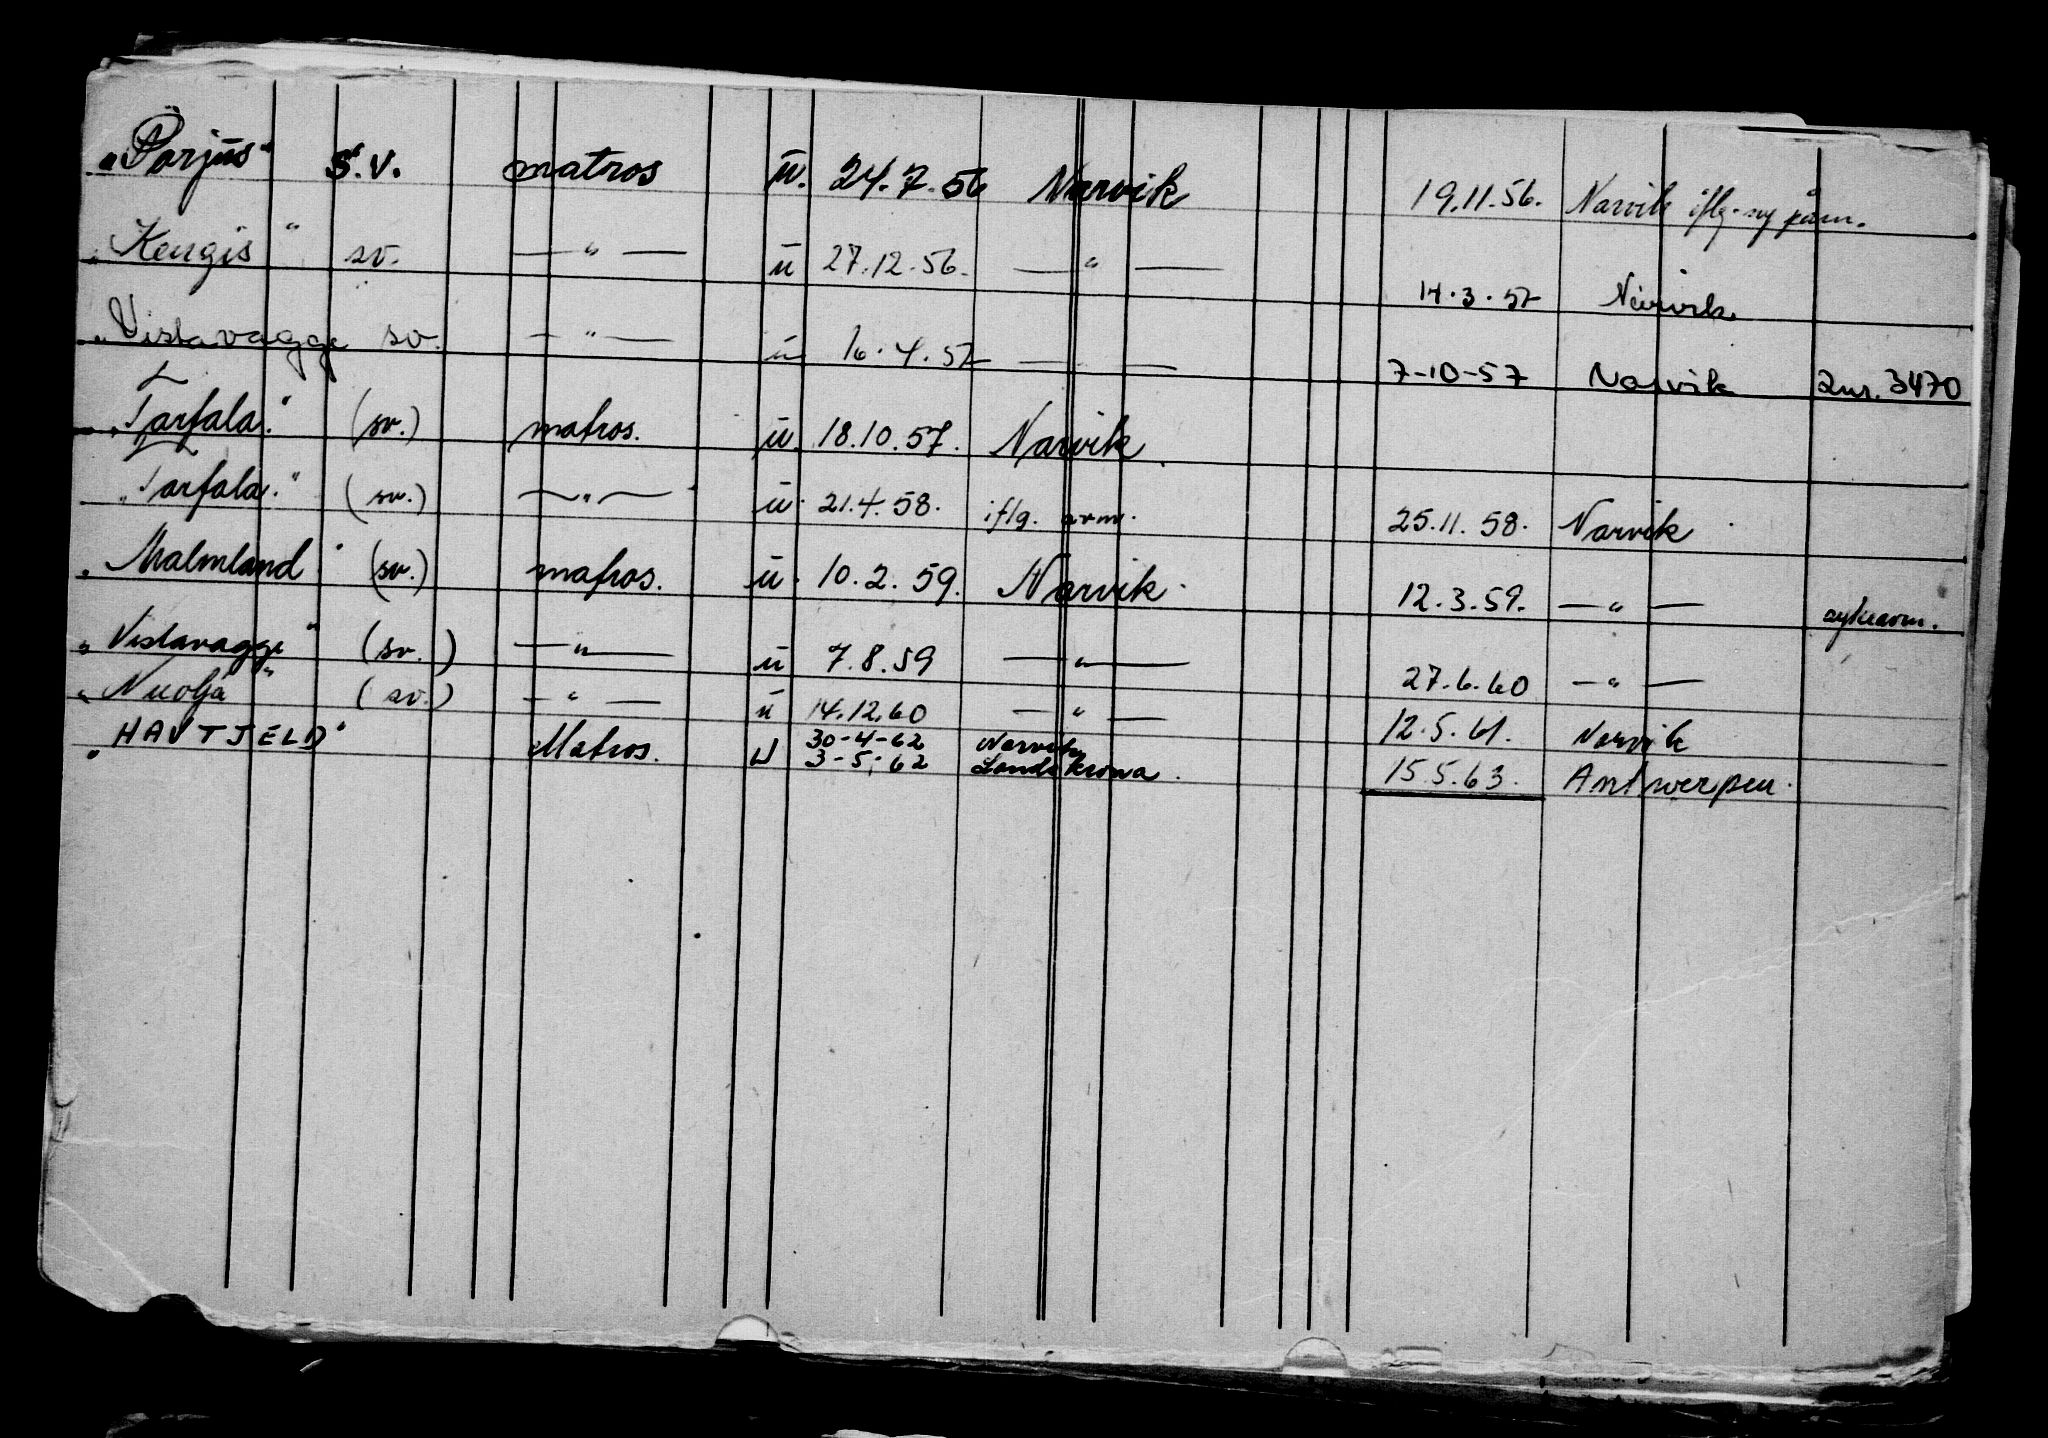 "Porjus" S.V. matros ū. 24.7.56 Narvik 19.11.56. Narvik iflg. ny påm.
"Kengis" sv. —"— ū 27.12.56. —"— 14.3.57 Narvik
"Vistavagge sv. —"— ū 16.4.57 — — 7-10-57 Narvik 2nr. 3470
"Tarfala." (sv.) matros. ū. 18.10.57. Narvik.
"Tarfala." (sv.) —"— ū. 21.4.58. iflg. avm. 25.11.58. Narvik
"Malmland" (sv.) matros. ū. 10.2.59. Narvik. 12.3.59. —"— sykeavm.
"Vistavagge" (sv.) —"— ū 7.8.59 —"— 27.6.60 —"—
"Nuolja" (sv.) —"— ū 14.12.60 —"— 12.5.61. Narvik
"HAVTJELD" Matros. U 30-4-62 Narvik 15.5.63. Antwerpen.
3-5-62 Landskrona.